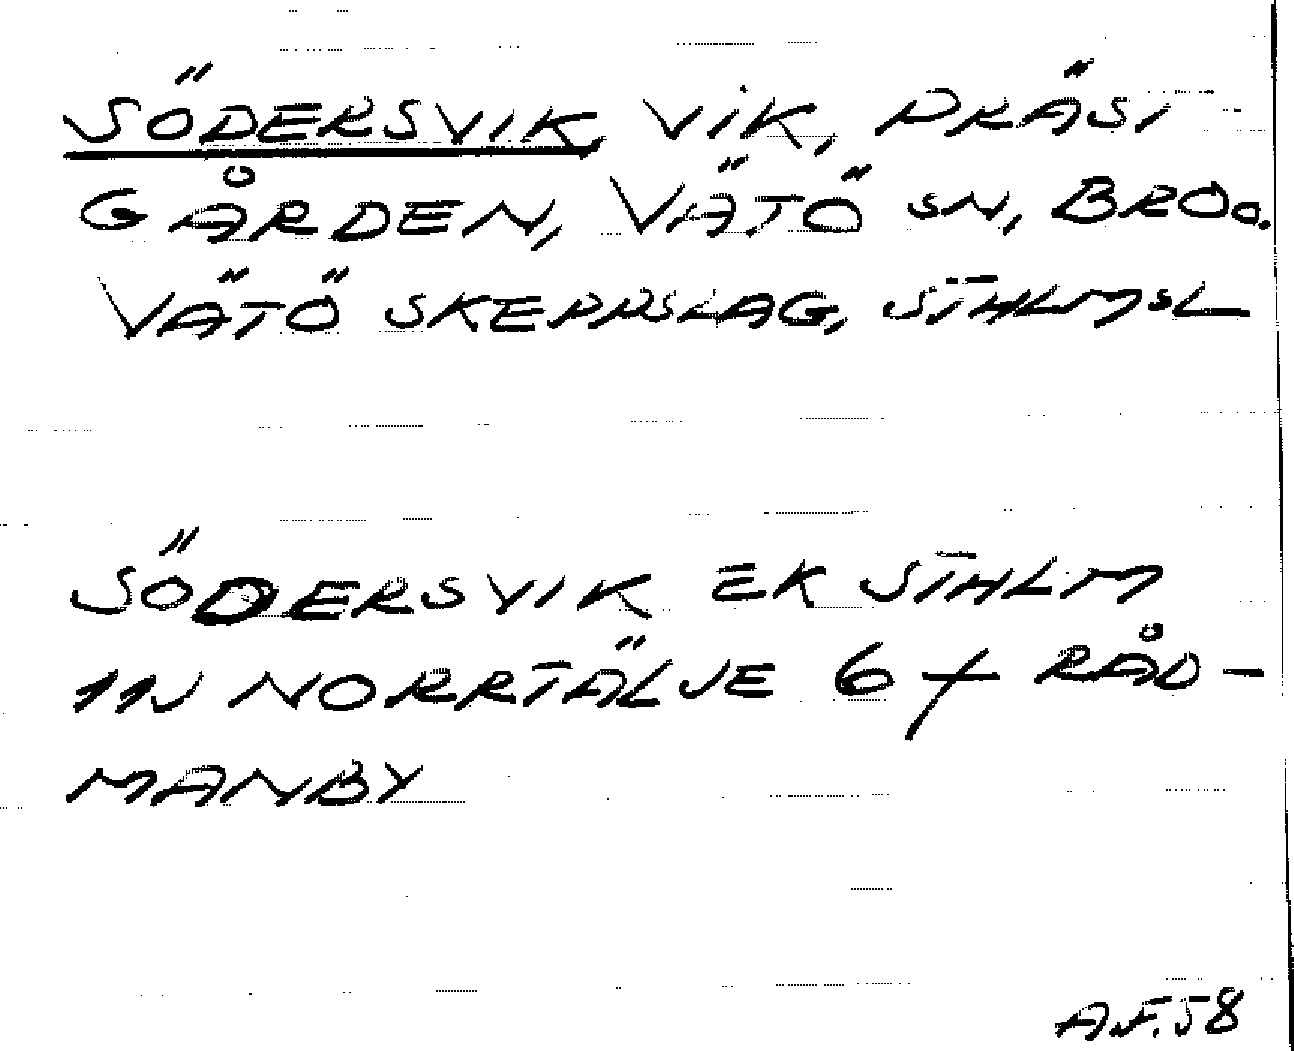 SÖDERSVIK, VIK, PRÄST
GÅRDEN, VÄTÖ SN, BRO O.
VÄTÖ SKEPPSLAG, STHLMSL
SÖDERSVIK EK STHLM
11J NORRTÄLJE 6 f RÅD-
MANBY
A.F. 58